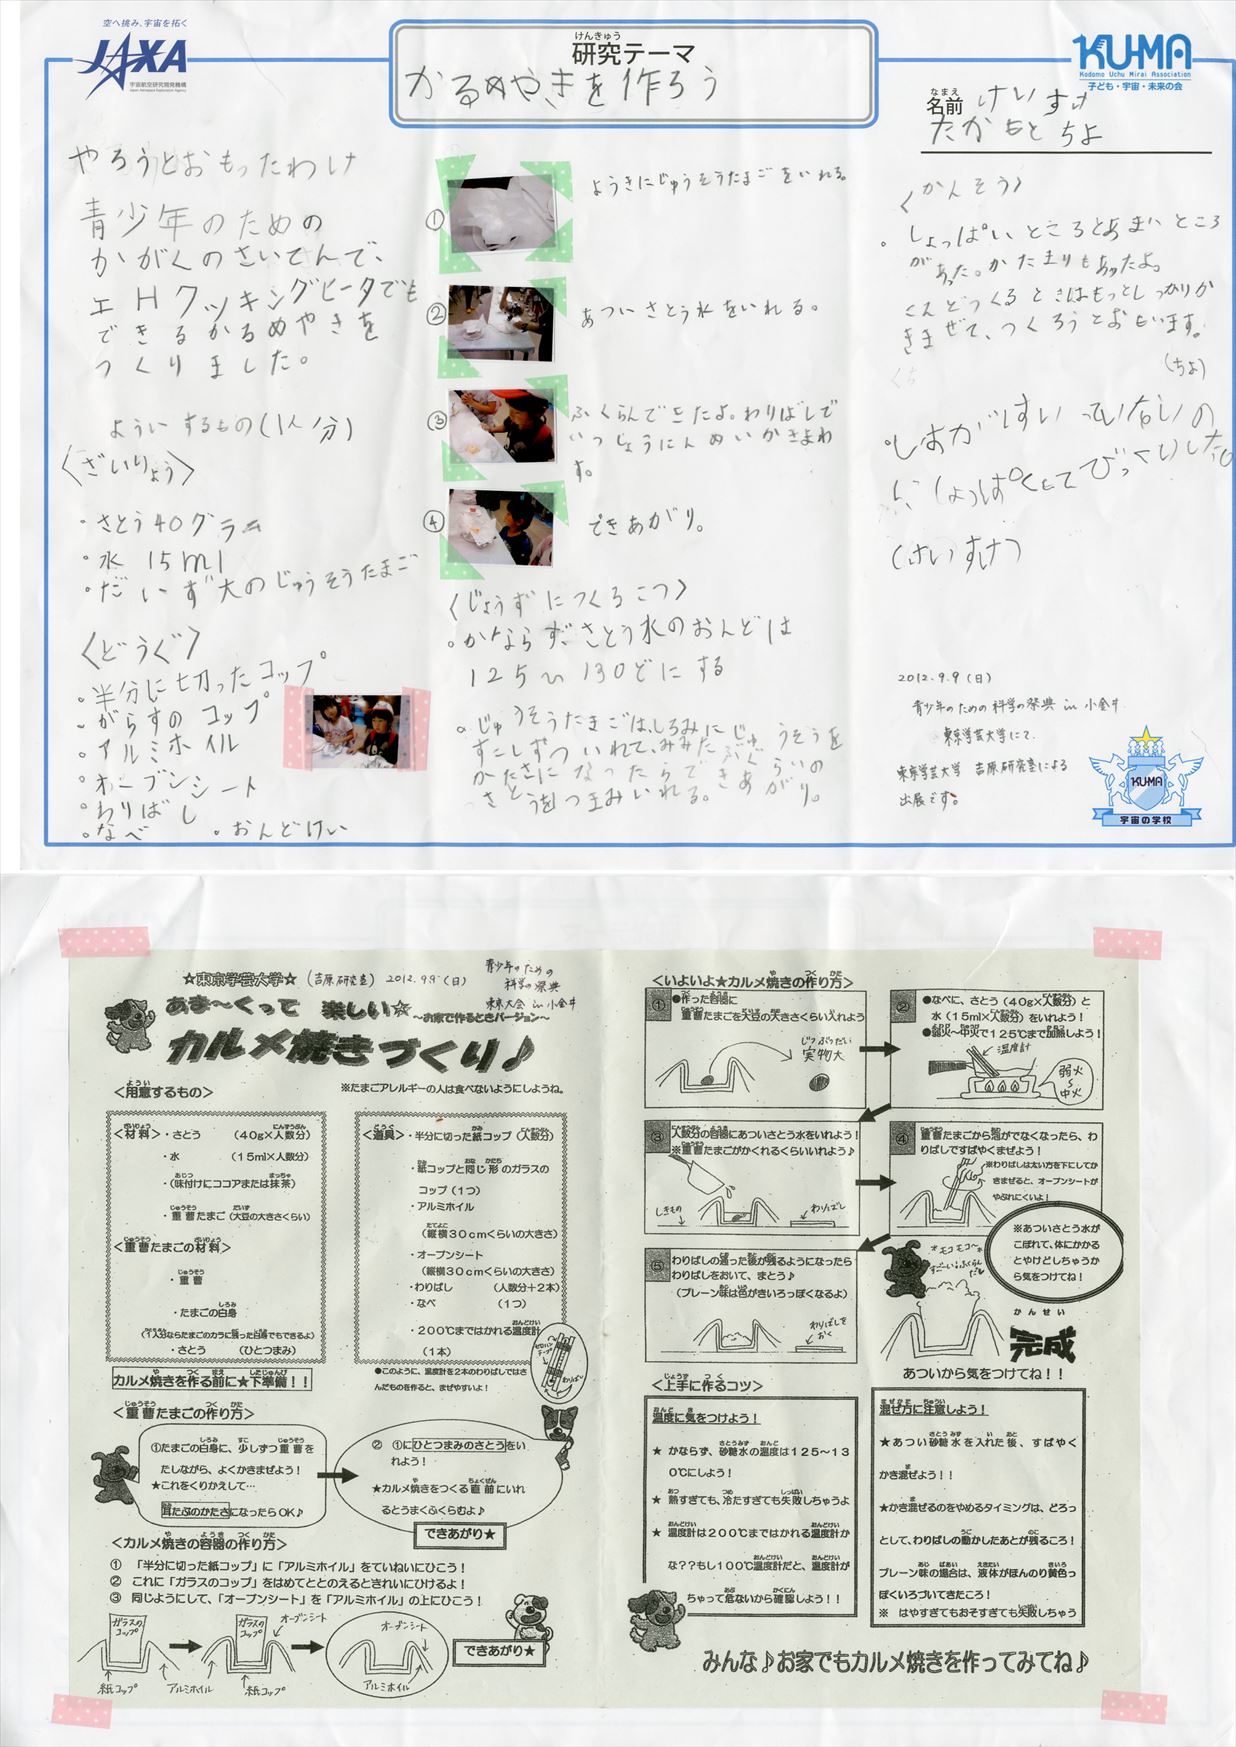 空へ挑み、宇宙を拓く
JAXA
宇宙航空研究開発機構
Japan Aerospace Exploration Agency
けんきゅう
研究テーマ
かるめやきを作ろう
KU-MA
Kodomo Uchu Mirai Association
子ども・宇宙・未来の会
なまえ
名前 けいすけ
たかもと ちよ
やろうとおもったわけ
青少年のための
かがくのさいてんで、
エHクッキングヒータでも
できるかるめやきを
つくりました。
よういするもの(1人分)
〈ざいりょう〉
・さとう40グラム
・水 15ml
・だいず大のじゅうそうたまご
〈どうぐ〉
・半分に切ったコップ
・がらすのコップ
・アルミホイル
・オーブンシート
・わりばし
・なべ ・おんどけい
① ようきにじゅうそうたまごをいれる。
② あついさとう水をいれる。
③ ふくらんできたよ。わりばしで
いっしょうにんめいかきまわ
す。
④ できあがり。
〈じょうずにつくるこつ〉
・かならずさとう水のおんどは
125〜130どにする
・じゅうそうたまごは、しろみにじゅうそうを
すこしずついれて、みみたぶぐらいの
かたさになったらできあがり。
さとうをつまみいれる。
〈かんそう〉
・しょっぱいところとあまいところ
があった。かたまりもあったよ。
こんどつくるときはもっとしっかりか
きまぜて、つくろうとおもいます。
(ちよ)
しょっぱくてびっくりした
(けいすけ)
2012.9.9(日)
青少年のための科学の祭典 in 小金井
東京学芸大学にて.
東京学芸大学 吉原研究室による
出展です。
KU-MA
宇宙の学校
☆東京学芸大学☆ (吉原研究室) 2012.9.9(日)
青少年のための
科学の祭典
東京大会 in 小金井
あま〜くって 楽しい☆
〜お家で作るときバージョン〜
カルメ焼きづくり♪
<用意するもの>
※たまごアレルギーの人は食べないようにしようね。
<材料>・さとう (40g×人数分)
・水 (15ml×人数分)
・(味付けにココアまたは抹茶)
・重曹たまご(大豆の大きさくらい)
<重曹たまごの材料>
・重曹
・たまごの白身
(1人分ならたまごのカラに残った白身でもできるよ)
・さとう (ひとつまみ)
<道具>・半分に切った紙コップ(人数分)
・紙コップと同じ形のガラスの
コップ(1つ)
・アルミホイル
(縦横30cmくらいの大きさ)
・オーブンシート
(縦横30cmくらいの大きさ)
・わりばし (人数分+2本)
・なべ (1つ)
・200℃まではかれる温度計
(1本)
●このように、温度計を2本のわりばしではさ
んだものを作ると、まぜやすいよ!
セロハンテープ
わりばし
カルメ焼きを作る前に★下準備!!
<重曹たまごの作り方>
①たまごの白身に、少しずつ重曹を
たしながら、よくかきまぜよう!
★これをくりかえして…
耳たぶのかたさになったらOK♪
② ①にひとつまみのさとうをい
れよう!
★カルメ焼きをつくる直前にいれ
るとうまくふくらむよ♪
できあがり★
<カルメ焼きの容器の作り方>
① 「半分に切った紙コップ」に「アルミホイル」をていねいにひこう!
② これに「ガラスのコップ」をはめてととのえるときれいにひけるよ!
③ 同じようにして、「オーブンシート」を「アルミホイル」の上にひこう!
ガラスのコップ
ガラスのコップ
オーブンシート
オーブンシート
紙コップ
アルミホイル
紙コップ
アルミホイル
できあがり★
<いよいよ★カルメ焼きの作り方>
① ●作った容器に
重曹たまごを大豆の大きさくらい入れよう
じつぶつだい
実物大
② ●なべに、さとう(40g×人数分)と
水(15ml×人数分)をいれよう!
●弱火〜中火で125℃まで加熱しよう!
温度計
弱火
〜
中火
③ 人数分の容器にあついさとう水をいれよう!
※重曹たまごがかくれるくらいいれよう♪
しきもの
わりばし
④ 重曹たまごから泡がでなくなったら、わ
りばしですばやくまぜよう!
※わりばしは太い方を下にしてか
きまぜると、オーブンシートが
やぶれにくいよ!
※あついさとう水が
こぼれて、体にかかる
とやけどしちゃうか
ら気をつけてね!
⑤ わりばしの通った後が残るようになったら
わりばしをおいて、まとう♪
(プレーン味は色がきいろっぽくなるよ)
わりばしを
おく
*モコモコ〜*
すごーいふくらんだ
かんせい
完成
あついから気をつけてね!!
<上手に作るコツ>
温度に気をつけよう!
★ かならず、砂糖水の温度は125〜13
0℃にしよう!
★ 熱すぎても、冷たすぎても失敗しちゃうよ
★ 温度計は200℃まではかれる温度計か
な??もし100℃温度計だと、温度計が
ちゃって危ないから確認しよう!!
混ぜ方に注意しよう!
★あつい砂糖水を入れた後、すばやく
かき混ぜよう!!
★かき混ぜるのをやめるタイミングは、どろっ
として、わりばしの動かしたあとが残るころ!
プレーン味の場合は、液体がほんのり黄色っ
ぽくいろづいてきたころ!
※ はやすぎてもおそすぎても失敗しちゃう
みんな♪お家でもカルメ焼きを作ってみてね♪